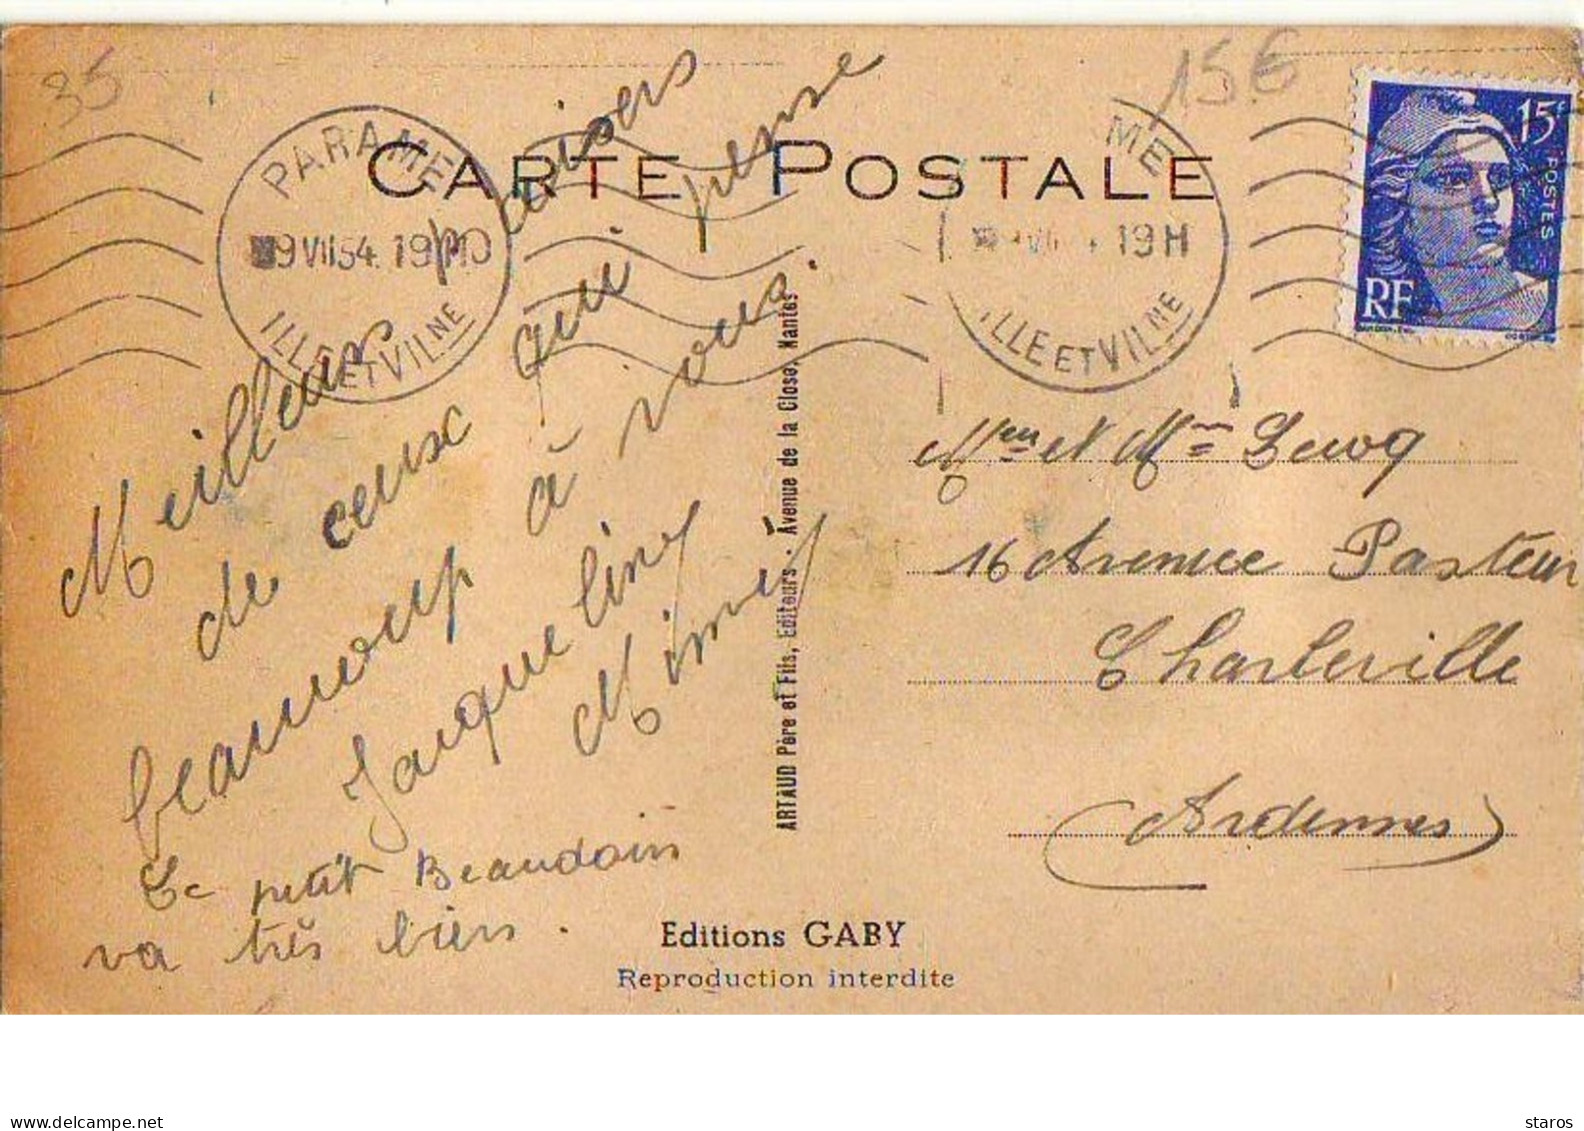 35
15€
CARTE POSTALE
PARAME
9 VII 54. 19H10
ILLE ET VILNE
ME
19H
ILLE ET VILNE
15F
POSTES
RF
Meilleurs baisers
de ceux qui pense
beaucoup à vous.
Jacqueline
Mimi
Le petit Beaudoin
va très bien.
ARTAUD Père et Fils, Editeurs - Avenue de la Close, Nantes
Mme
16 Avenue Pasteur
Charleville
Ardennes
Editions GABY
Reproduction interdite
www.delcampe.net
staros